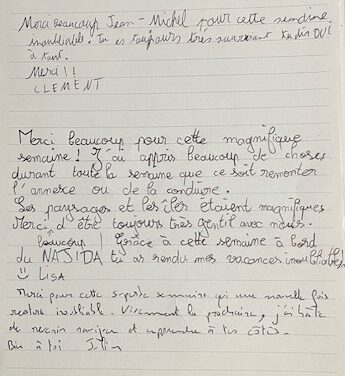 Merci beaucoup Jean-Michel pour cette semaine
inoubliable. Tu es toujours très souriant tu dis OUI
à tout.
Merci!!
CLEMENT
Merci beaucoup pour cette magnifique
semaine! J'ai appris beaucoup de choses
durant toute la semaine que ce soit remonter
l'annexe ou de la conduire.
Les paysages et les îles étaient magnifiques
Merci d'être toujours très gentil avec nous.
beaucoup! Grâce à cette semaine à bord
du NAJIDA tu as rendu mes vacances inoubliables
LISA
Merci pour cette superbe semaine qui une nouvelle fois
restera inoubliable. Vivement la prochaine, j'ai hâte
de revenir naviguer et apprendre à tes côtés.
Bien à toi